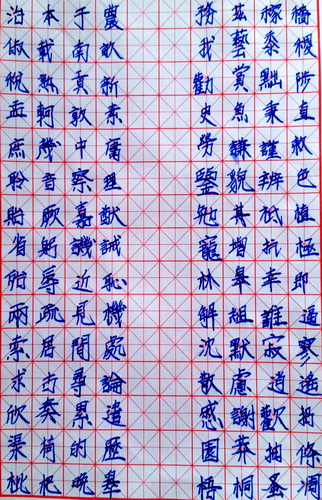 治本于農 務茲稼穡
俶載南畝 我藝黍稷
稅熟貢新 勸賞黜陟
孟軻敦素 史魚秉直
庶幾中庸 勞謙謹敕
聆音察理 鑒貌辨色
貽厥嘉猷 勉其祗植
省躬譏誡 寵增抗極
殆辱近恥 林皋幸即
兩疏見機 解組誰逼
索居間處 沈默寂寥
求古尋論 散慮逍遙
欣奏累遣 感謝歡招
渠荷的歷 園莽抽條
枇杷晚翠 梧桐蚤凋